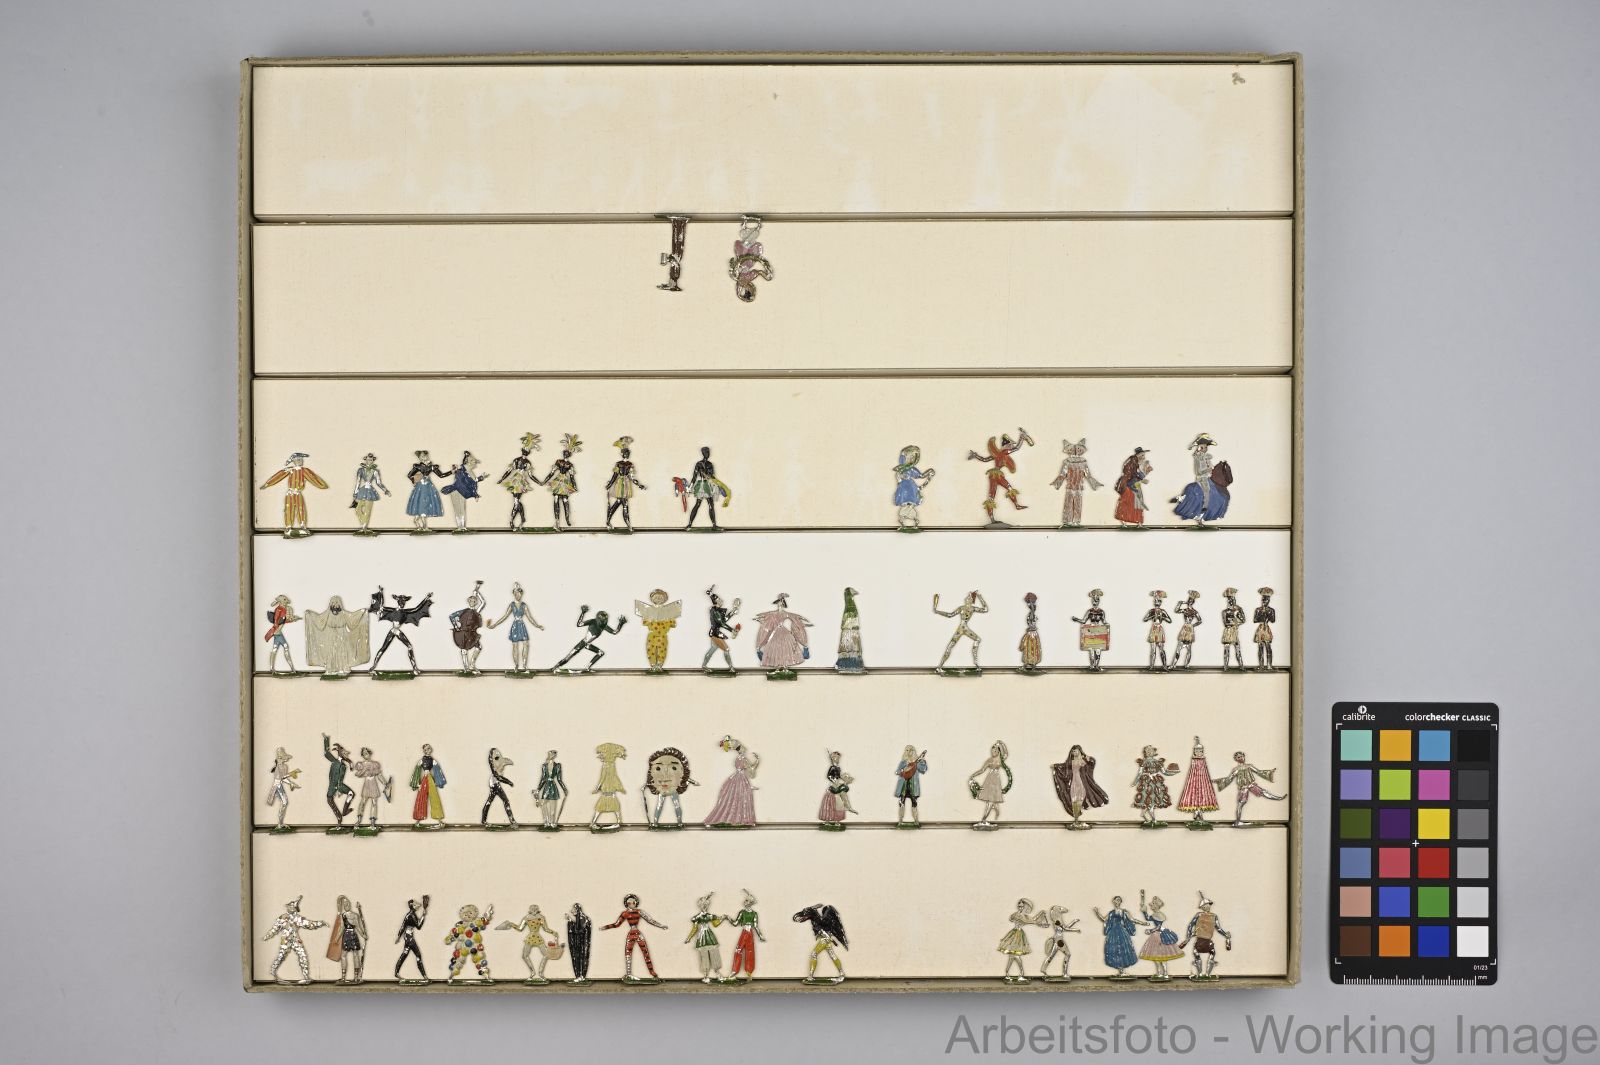 calibrite colorchecker CLASSIC
01/23
mm
Arbeitsfoto - Working Image